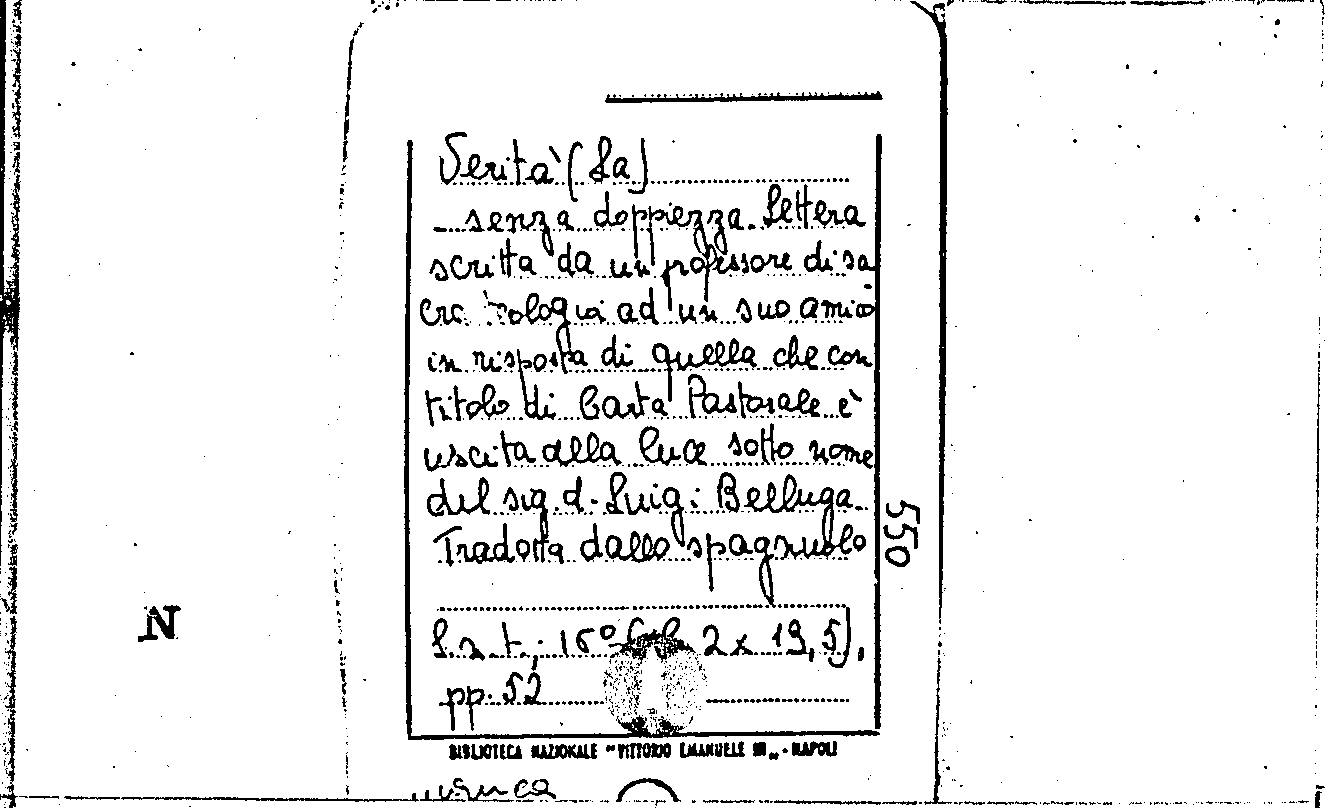 Verità (La)
senza doppiezza. Lettera
scritta da un professore di sa
cra teologia ad un suo amico
in risposta di quella che con
titolo di Carta Pastorale è
uscita alla luce sotto nome
del sig. d. Luigi Belluga.
Tradotta dallo spagnuolo
S.n.t.; 16° 2 x 19,5),
pp. 52
BIBLIOTECA NAZIONALE "VITTORIO EMANUELE III" - NAPOLI
550
N